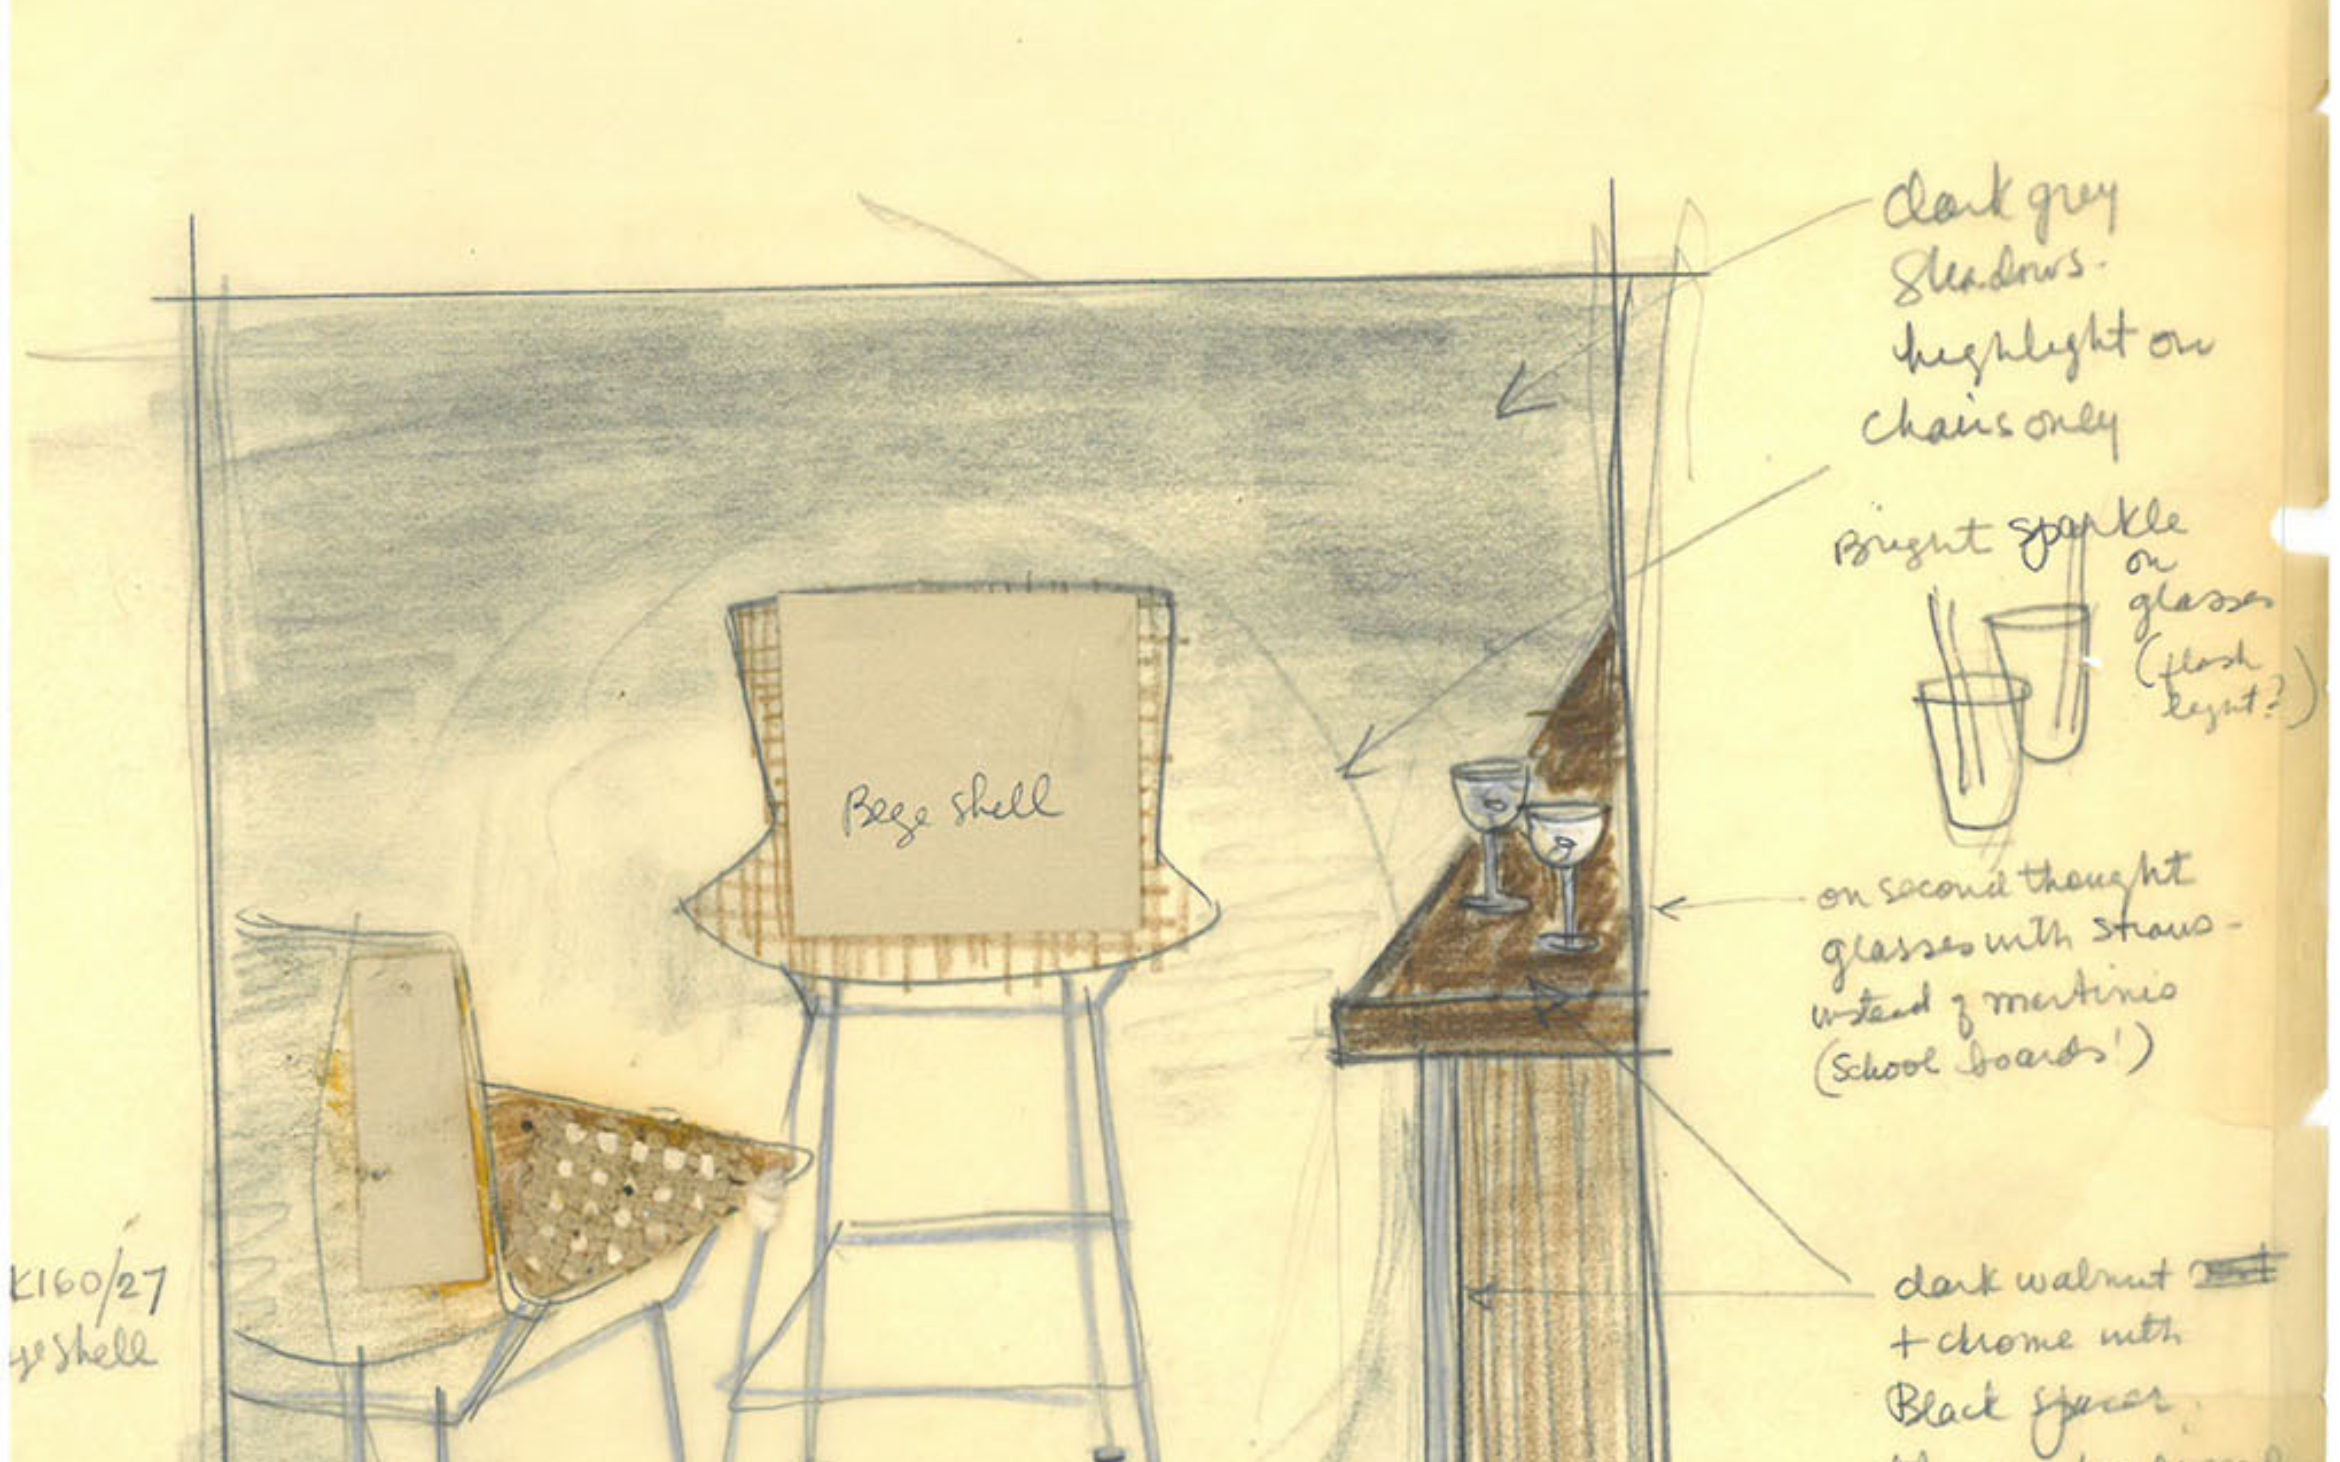 dark grey
Shadows.
highlight on
chairs only
Bright sparkle
on
glasses
(flash
light?)
Bege shell
on second thought
glasses with straws -
instead of martinis
(School boards!)
K160/27
shell
dark walnut
+ chrome with
Black spacer